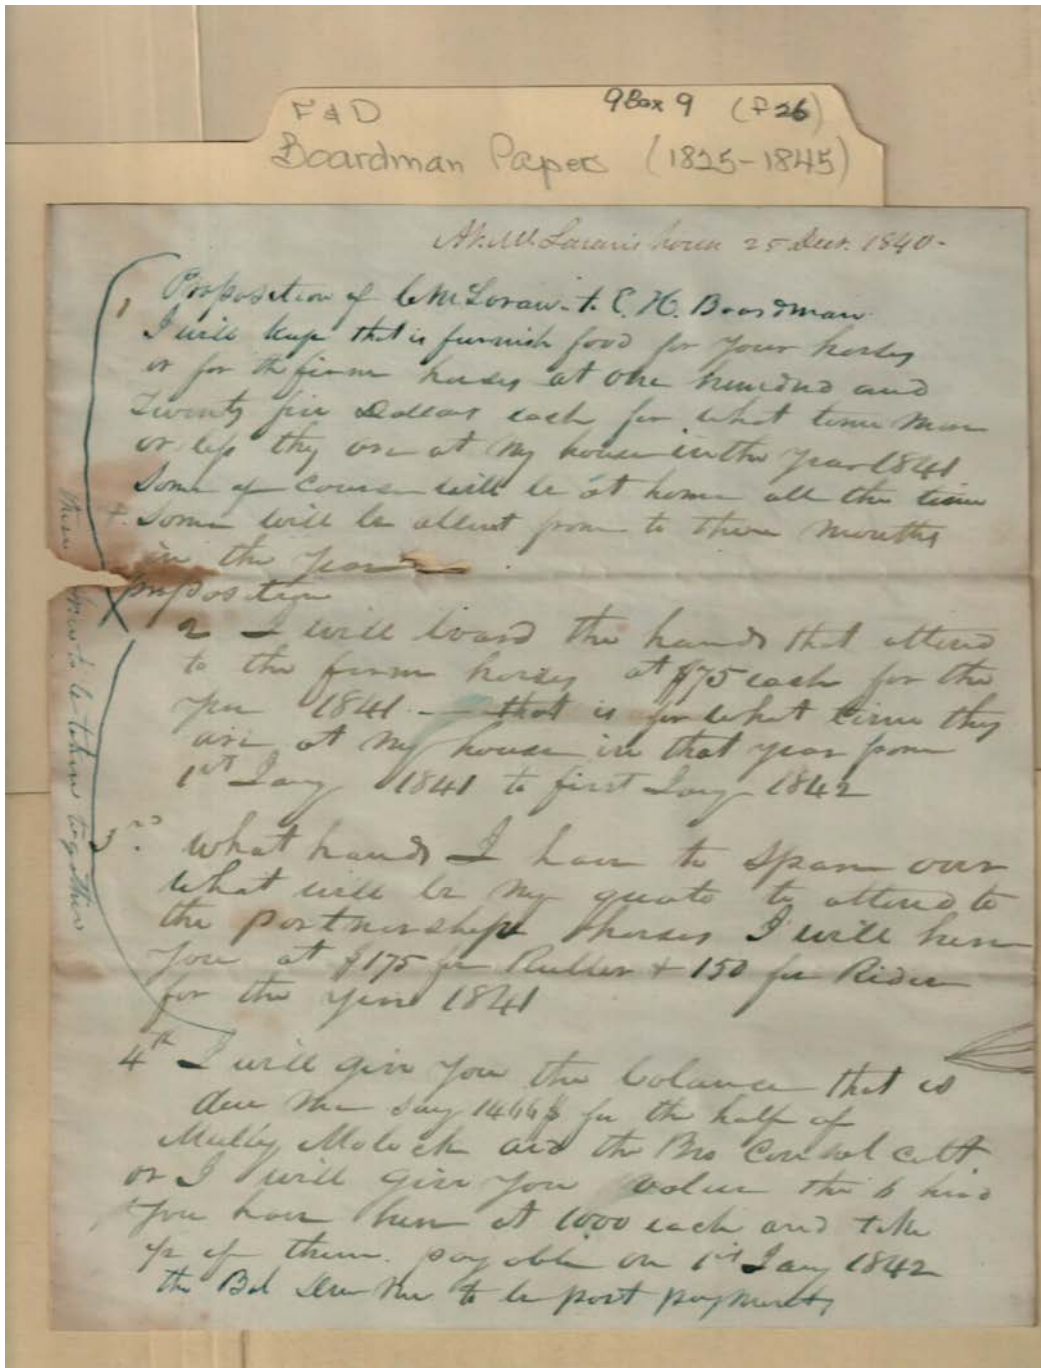 F & D 9 Box 9 (f 26)
Boardman Papers (1825-1845)
house 25 Decr. 1840-
1 Proposition of C McLoran to E. H. Boardman
I will keep that is furnish food for your horses
or for the firm horses at one hundred and
Twenty five Dollars each for what time more
or less they are at my house in the year 1841
Some of course will be at home all the time
& some will be absent from to three months
in the year
proposition
2 I will board the hands that attend
to the firm horses at $75 each for the
year 1841 - that is for what time they
are at my house in that year from
1st Jany 1841 to first Jany 1842
3 what hands I have to spare over
what will be my quota to attend to
the partnership horses I will hire
you at $175 for Rubber & 150 for Rider
for the year 1841
4th I will give you the balance that is
due me say 1466$ for the half of
Mulley Moloch and the Bro Consol colt.
or I will give you value the 6 head
you have here at 1000 each and take
1/2 of them. payable on 1st Jany 1842
the Bal Due me to be part payment
these two to be taken together